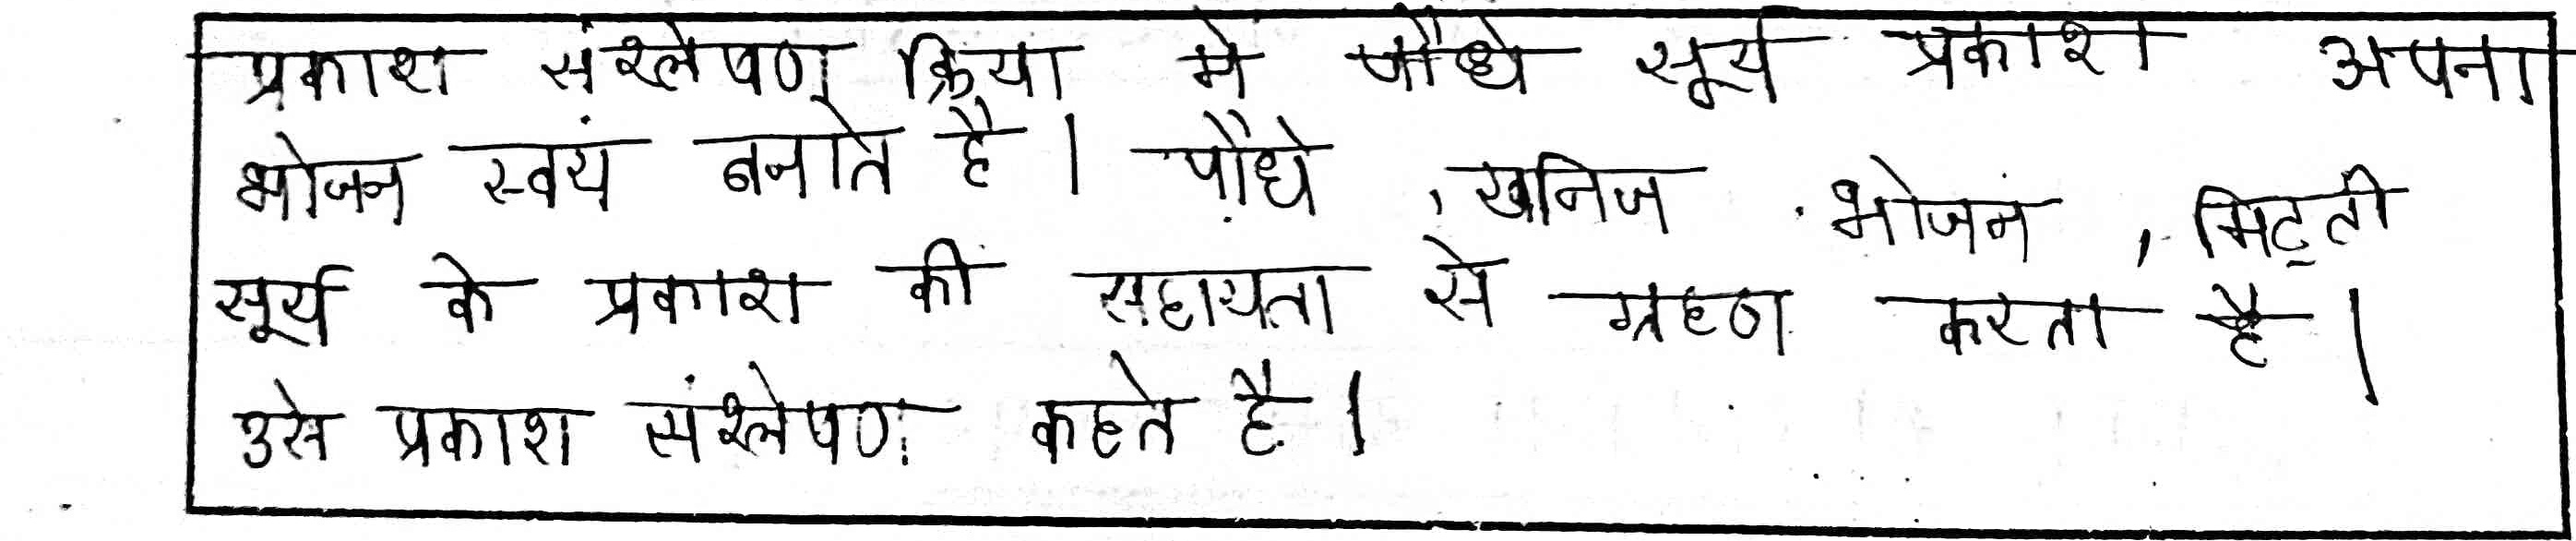 प्रकाश संश्लेषण क्रिया मे पौधे सूर्य प्रकाश अपना
भोजन स्वयं बनाते है। पौधे , खनिज भोजन , मिट्ती
सूर्य के प्रकाश की सहायता से ग्रहण करता है।
उसे प्रकाश संश्लेषण कहते है।